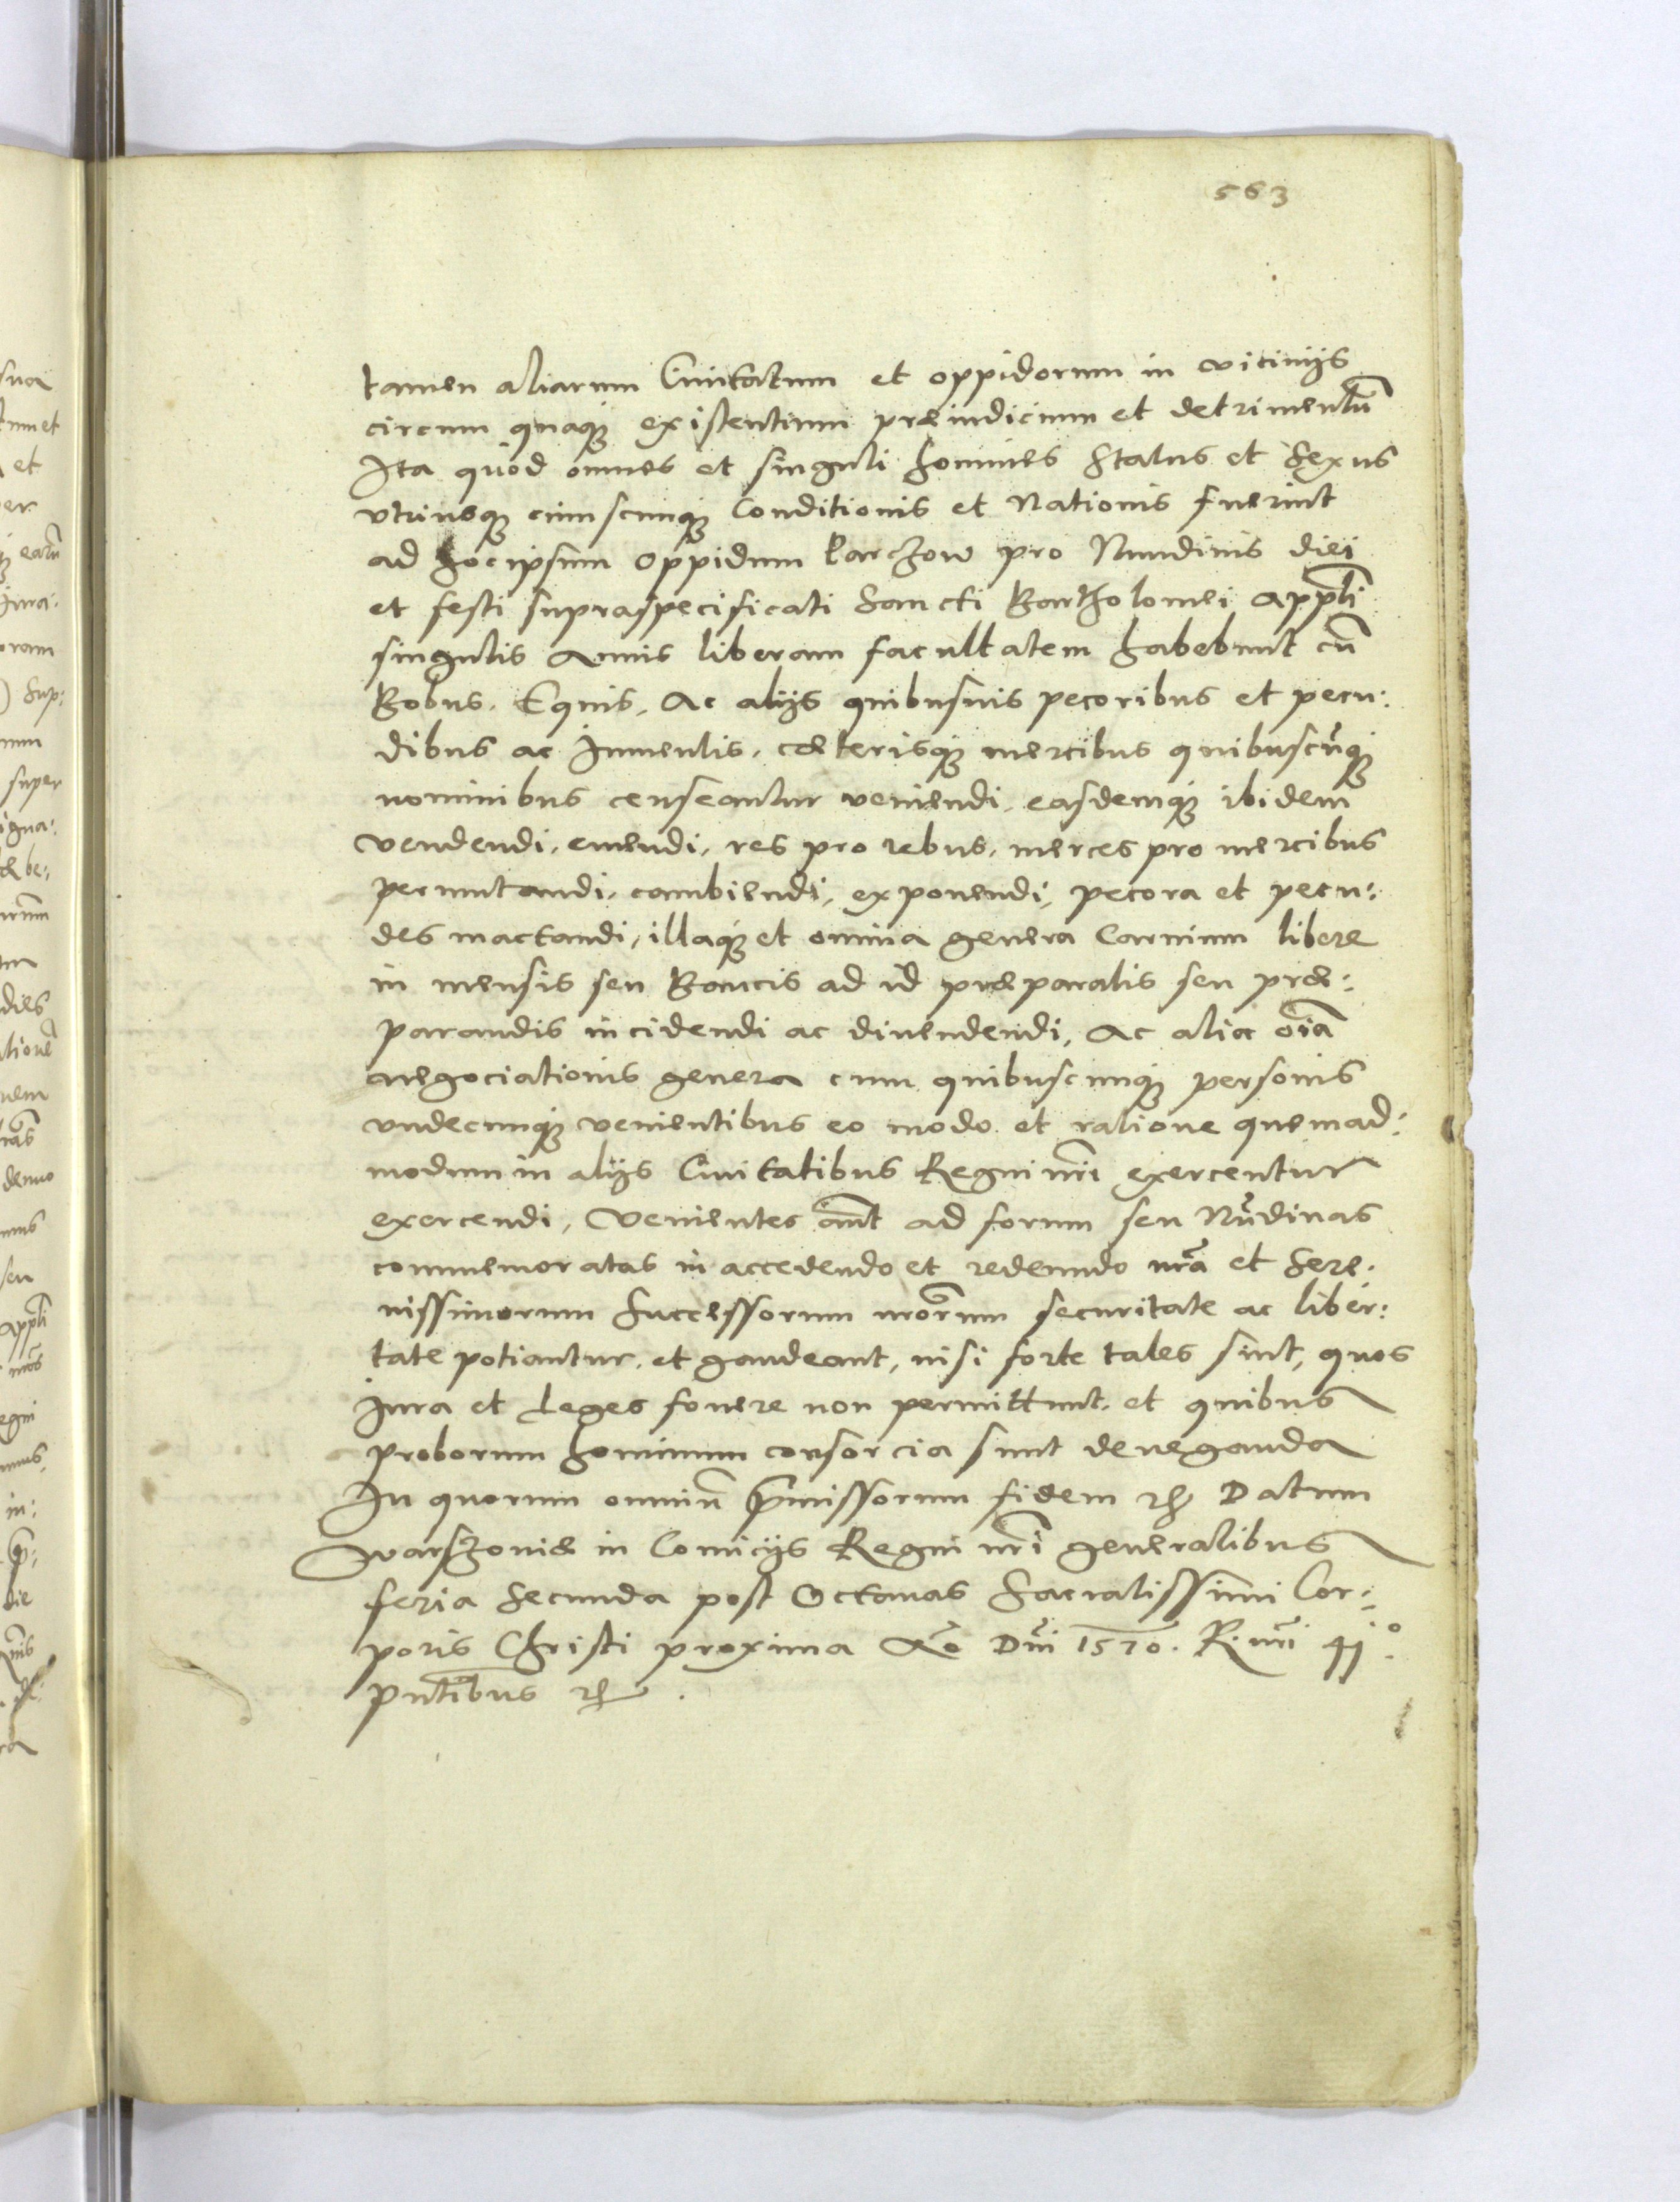 563
tamen aliarum Ciuitatum et oppidorum in vicinijs
circum quaq; existentium præiudicium et detrimentũ
Ita quòd omnes et singuli homines Status et Sexus
vtriusq; cuiuscunq; Conditionis et Nationis fuerint
ad hoc ipsum oppidum Parczow pro Nundinis diei
et festi supraspecificati Sancti Bartholomei Appli
singulis Annis liberam facultatem habebunt cũ
Bobus, Equis, Ac alijs quibusuis pecoribus et pecu:
dibus ac Iumentis, cæterisq; mercibus quibuscũq;
nominibus censeantur veniendi, easdemq; ibidem
vendendi, emendi, res pro rebus, merces pro mercibus
permutandi, cambiendi, exponendi, pecora et pecu:
des mactandi, illaq; et omnia genera Carnium libere
in mensis seu Bancis ad id præparatis seu præ:
parandis incidendi ac diuendendi, Ac alia oĩa
negociationis genera cum quibuscunq; personis
vndecunq; venientibus eo modo et ratione quemad:
modum in alijs Ciuitatibus Regni nri exercentur
exercendi, Venientes aũt ad forum seu Nũdinas
commemoratas in accedendo et redeundo nrã et Sere:
nissimorum Successorum nrorum securitate ac liber:
tate potiantur, et gaudeant, nisi forte tales sint, quos
Iura et Leges fouere non permittunt, et quibus
proborum hominum consorcia sunt deneganda
In quorum omniũ p̃missorum fidem etc Datum
Warszoviæ in Comicijs Regni nri generalibus
feria Secunda post Octauas Sacratissimi Cor:
poris Christi proxima Ao Dni 1570. R. nri 41°.
pntibus etc.